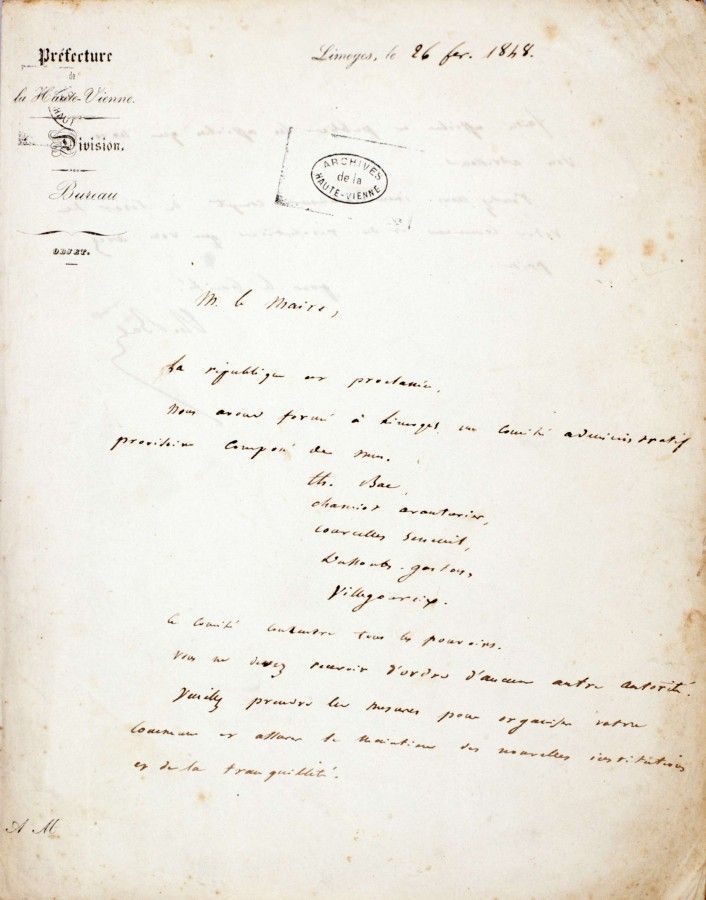 Préfecture
de
la Haute-Vienne.
Division.
Bureau
OBJET.
Limoges, le 26 fev. 1848.
ARCHIVES
de la
HAUTE-VIENNE
M. le Maire,
La république est proclamée.
Nous avons formé à Limoges un comité administratif
provisoire composé de mm.
th. Bac,
chamiot avanturier,
courcelles seneuil,
Dussoubs-gaston,
Villegoureix.
le comité centralise tous les pouvoirs.
Vous ne devez recevoir d'ordre d'aucune autre autorité.
Veuillez prendre les mesures pour organiser votre
commune et assurer le maintien des nouvelles institutions
et de la tranquillité.
A M